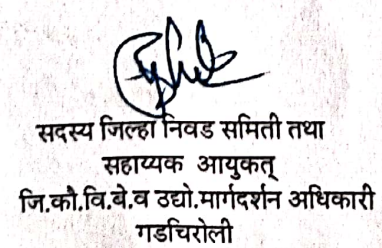 सदस्य जिल्हा निवड समिती तथा
सहाय्यक आयुकत्
जि.कौ.वि.बे.व उद्यो.मार्गदर्शन अधिकारी
गडचिरोली